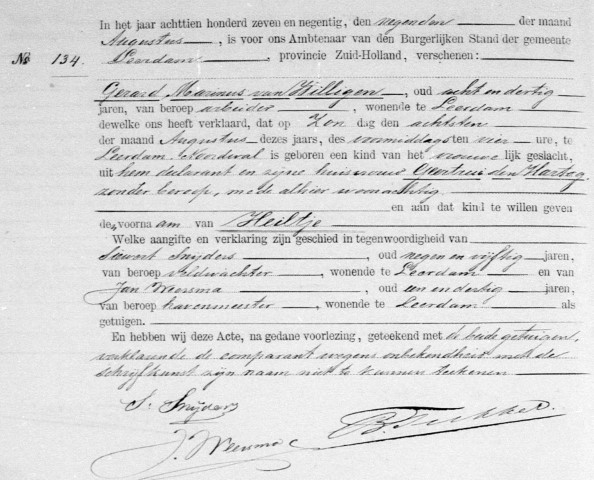 In het jaar achttien honderd zeven en negentig, den negenden der maand
Augustus, is voor ons Ambtenaar van den Burgerlijken Stand der gemeente
No 134. Leerdam, provincie Zuid-Holland, verschenen:
Gerard Marinus van Willigen, oud acht en dertig
jaren, van beroep arbeider, wonende te Leerdam
dewelke ons heeft verklaard, dat op Zon dag den achtsten
der maand Augustus dezes jaars, des voormiddags ten vier ure, te
Leerdam Noordwal is geboren een kind van het vrouwe lijk geslacht,
uit hem declarant en zijne huisvrouw Geertrui den Hartog
zonder beroep, mede alhier woonachtig
en aan dat kind te willen geven
de voorna am van Heiltje
Welke aangifte en verklaring zijn geschied in tegenwoordigheid van
Sievert Snijders, oud negen en vijftig jaren,
van beroep veldwachter, wonende te Leerdam en van
Jan Weersma, oud een en dertig jaren,
van beroep havenmeester, wonende te Leerdam als
getuigen.
En hebben wij deze Acte, na gedane voorlezing, geteekend met de beide getuigen,
verklarende de comparant wegens onbekendheid met de
schrijfkunst zijn naam niet te kunnen teekenen
S. Snijders
J. Weersma